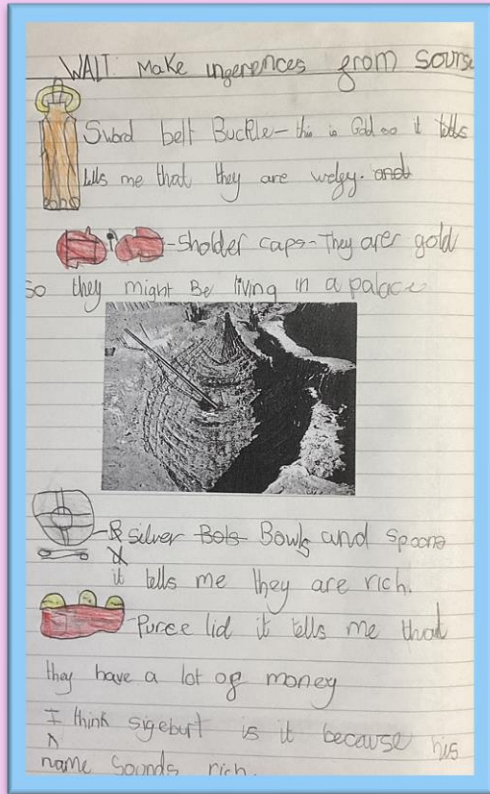 WALT Make inferences from sourse
Sword belt Buckle – this is Gold so it tells
tells me that they are welfy. and
– Sholder caps – They are gold
so they might Be living in a palace
– silver Bols Bowls and spoons
it tells me they are rich.
– Purce lid it tells me that
they have a lot of money
I think sigeburt is it because his
name sounds rich.